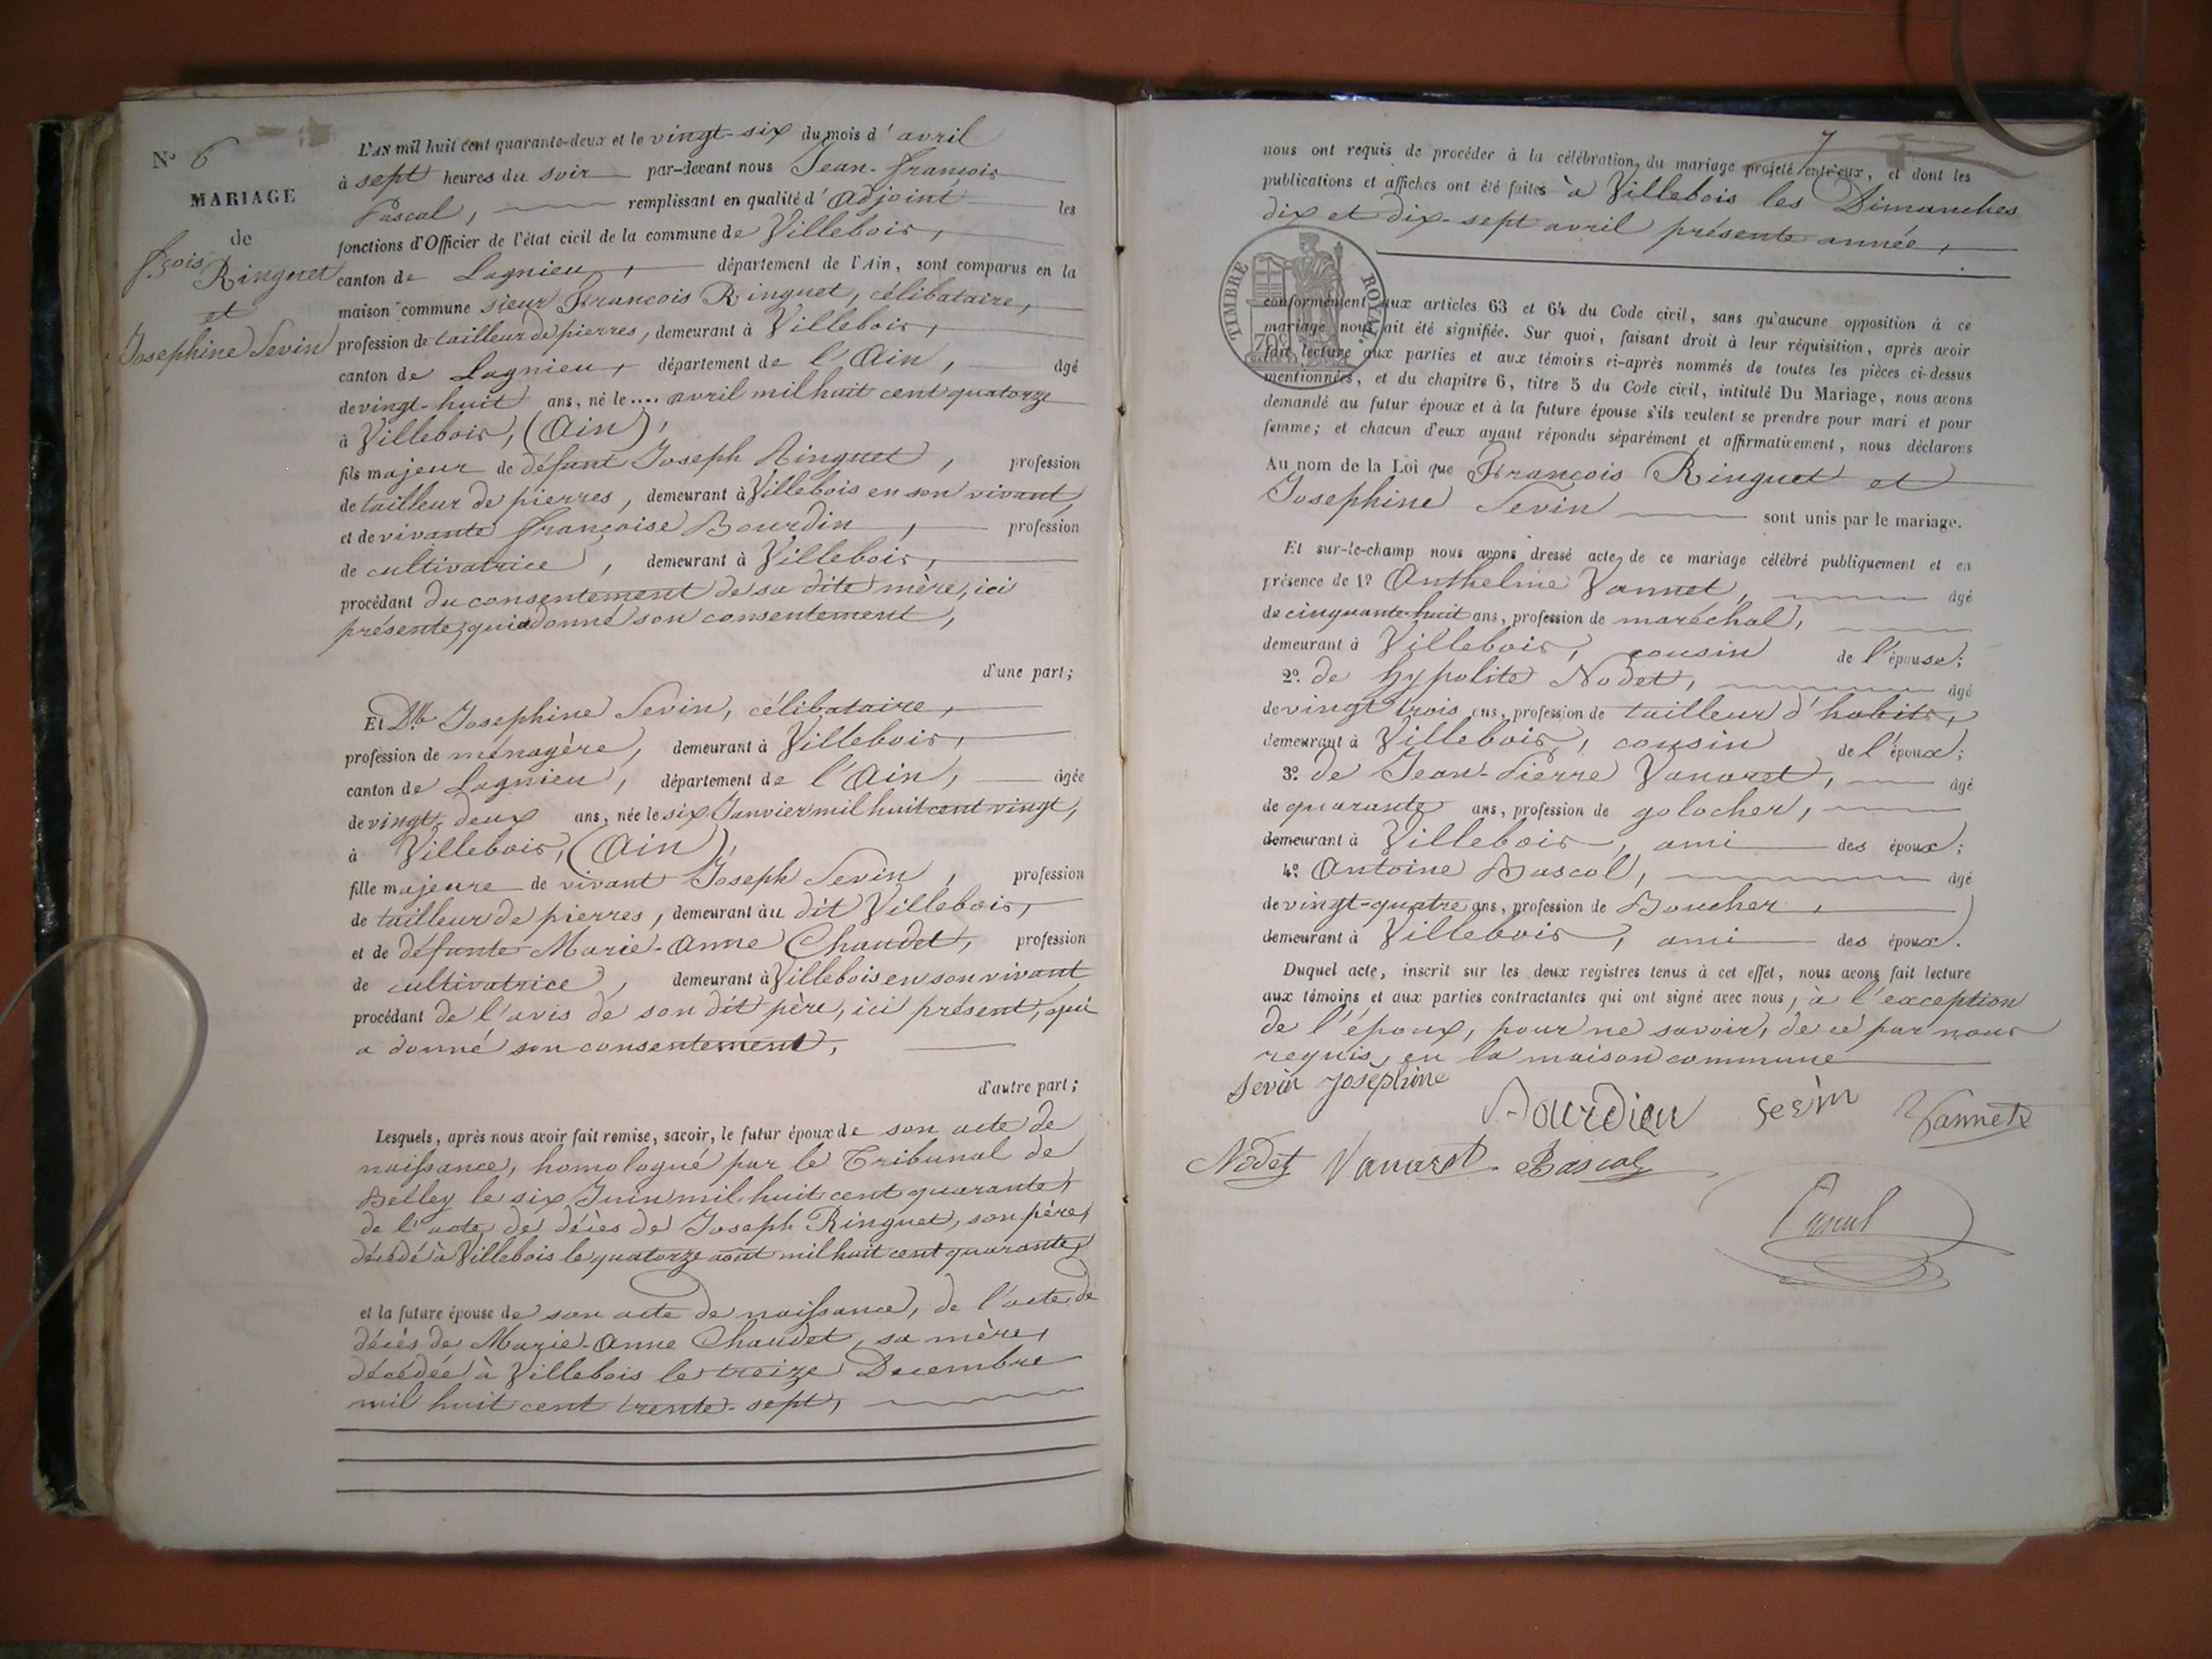 N° 6
MARIAGE
de
f.çois Ringuet
et
Josephine Sevin
L'AN mil huit cent quarante-deux et le vingt-six du mois d'avril
à sept heures du soir par-devant nous Jean-françois
Pascal, remplissant en qualité d'Adjoint les
fonctions d'Officier de l'état civil de la commune de Villebois,
canton de Lagnieu, département de l'Ain, sont comparus en la
maison commune sieur François Ringuet, célibataire,
profession de tailleur de pierres, demeurant à Villebois,
canton de Lagnieu, département de l'Ain, âgé
de vingt-huit ans, né le .... avril mil huit cent quatorze
à Villebois, (Ain),
fils majeur de défunt Joseph Ringuet, profession
de tailleur de pierres, demeurant à Villebois en son vivant,
et de vivante françoise Bourdin, profession
de cultivatrice, demeurant à Villebois,
procédant du consentement de sa dite mère, ici
présente, qui a donné son consentement,
d'une part;
Et Dlle Josephine Sevin, célibataire,
profession de ménagère, demeurant à Villebois,
canton de Lagnieu, département de l'Ain, âgée
de vingt-deux ans, née le six Janvier mil huit cent vingt,
à Villebois, (Ain),
fille majeure de vivant Joseph Sevin, profession
de tailleur de pierres, demeurant àu dit Villebois,
et de défunte Marie-Anne Chaudet, profession
de cultivatrice, demeurant à Villebois en son vivant
procédant de l'avis de son dit père, ici présent, qui
a donné son consentement,
d'autre part;
Lesquels, après nous avoir fait remise, savoir, le futur époux de son acte de
naissance, homologué par le Tribunal de
Belley le six Juin mil huit cent quarante,
de l'acte de décès de Joseph Ringuet, son père,
décédé à Villebois le quatorze août mil huit cent quarante,
et la future épouse de son acte de naissance, de l'acte de
décès de Marie-Anne Chaudet, sa mère,
décédée à Villebois le treize Decembre
mil huit cent trente-sept,
7
nous ont requis de procéder à la célébration du mariage projeté entr'eux, et dont les
publications et affiches ont été faites à Villebois les Dimanches
dix et dix-sept avril présente année,
TIMBRE ROYAL.
70c
conformément aux articles 63 et 64 du Code civil, sans qu'aucune opposition à ce
mariage nous ait été signifiée. Sur quoi, faisant droit à leur réquisition, après avoir
fait lecture aux parties et aux témoins ci-après nommés de toutes les pièces ci-dessus
mentionnées, et du chapitre 6, titre 5 du Code civil, intitulé Du Mariage, nous avons
demandé au futur époux et à la future épouse s'ils veulent se prendre pour mari et pour
femme; et chacun d'eux ayant répondu séparément et affirmativement, nous déclarons
Au nom de la Loi que François Ringuet et
Josephine Sevin sont unis par le mariage.
Et sur-le-champ nous avons dressé acte de ce mariage célébré publiquement et en
présence de 1° Anthelme Vannet, âgé
de cinquante-huit ans, profession de maréchal,
demeurant à Villebois, cousin de l'épouse;
2° de hypolite Nodet, âgé
de vingt trois ans, profession de tailleur d'habits,
demeurant à Villebois, cousin de l'époux;
3° de Jean-Pierre Vanaret, âgé
de quarante ans, profession de golocher,
demeurant à Villebois, ami des époux;
4° Antoine Bascol, âgé
de vingt-quatre ans, profession de Boucher,
demeurant à Villebois, ami des époux.
Duquel acte, inscrit sur les deux registres tenus à cet effet, nous avons fait lecture
aux témoins et aux parties contractantes qui ont signé avec nous, à l'exception
de l'époux, pour ne savoir, de ce par nous
requis, en la maison commune
Sevin Joséphine
Bourdieu Sevin Vannet
Nodet Vanaret Bascol
Pascal